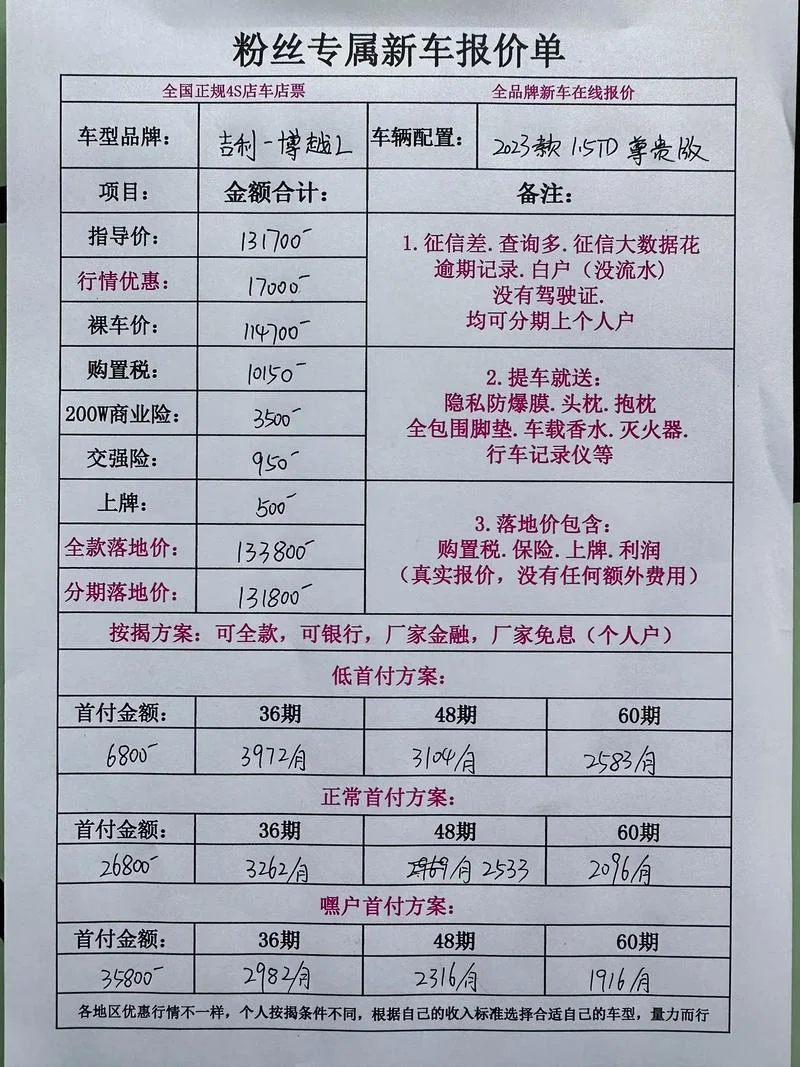 粉丝专属新车报价单
全国正规4S店车店票 全品牌新车在线报价
车型品牌： 吉利-博越L 车辆配置： 2023款 1.5TD 尊贵版
项目： 金额合计： 备注：
指导价： 131700-
行情优惠： 17000-
裸车价： 114700-
购置税： 10150-
200W商业险： 3500-
交强险： 950-
上牌： 500-
全款落地价： 133800-
分期落地价： 131800-
1.征信差.查询多.征信大数据花
逾期记录.白户（没流水)
没有驾驶证.
均可分期上个人户
2.提车就送：
隐私防爆膜.头枕.抱枕
全包围脚垫.车载香水.灭火器.
行车记录仪等
3.落地价包含：
购置税.保险.上牌.利润
（真实报价，没有任何额外费用）
按揭方案：可全款，可银行，厂家金融，厂家免息（个人户）
低首付方案：
首付金额： 36期 48期 60期
6800- 3972/月 3104/月 2583/月
正常首付方案：
首付金额： 36期 48期 60期
26800- 3262/月 /月 2533 2096/月
嘿户首付方案：
首付金额： 36期 48期 60期
35800- 2982/月 2316/月 1916/月
各地区优惠行情不一样，个人按揭条件不同，根据自己的收入标准选择合适自己的车型，量力而行